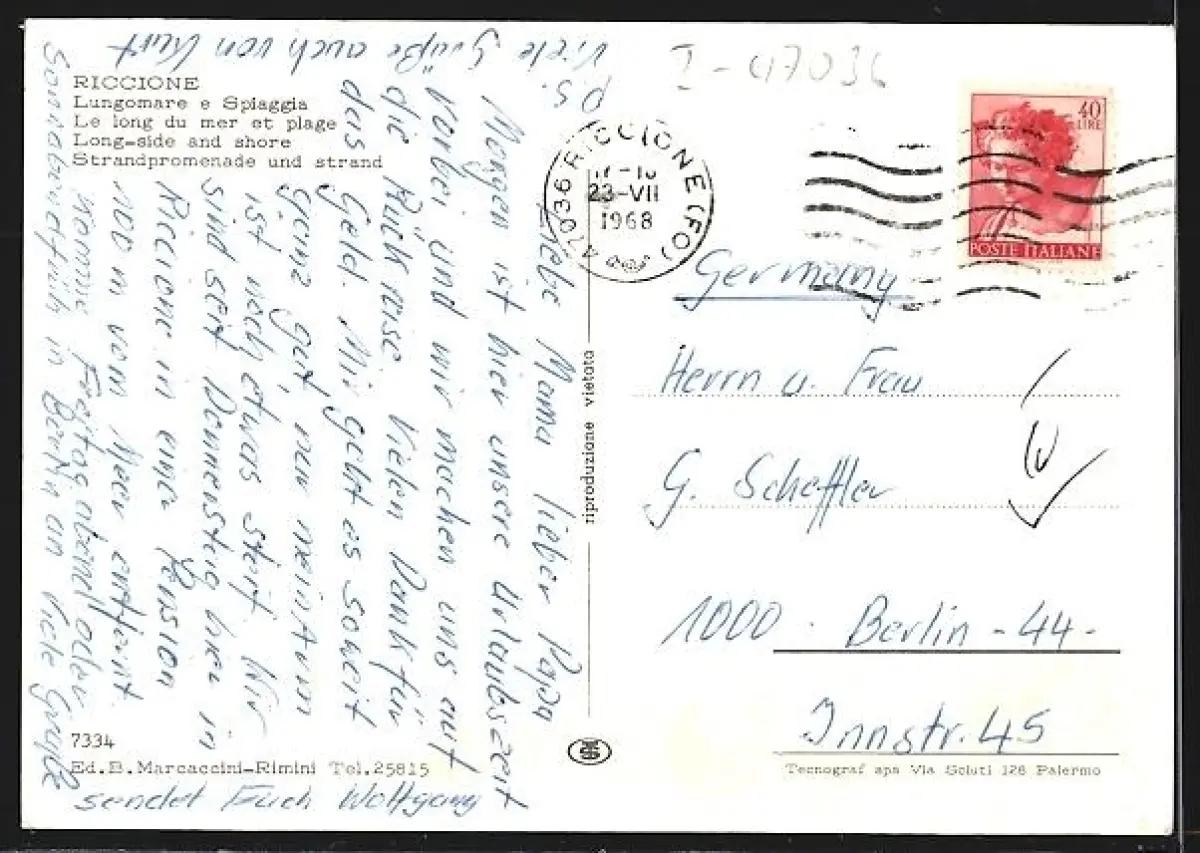 RICCIONE
Lungomare e Spiaggia
Le long du mer et plage
Long-side and shore
Strandpromenade und strand
Liebe Mama lieber Papa
Morgen ist hier unsere Urlaubszeit
vorbei und wir machen uns auf
die Rückreise. Vielen Dank für
das Geld. Mir geht es soweit
ganz gut, nur mein Arm
ist noch etwas steif. Wir
sind seit Donnerstag hier in
Riccione in einer Pension
100 m vom Meer entfernt.
komme Freitag abend oder
Sonnabend früh in Berlin an Viele Grüße
sendet Euch Wolfgang
P.S.
Viele Grüße auch von Kurt
7334
Ed. B. Marcaccini-Rimini Tel. 25815
riproduzione vietata
I-47036
47036 RICCIONE (FO)
23-VII
1968
40
LIRE
POSTE ITALIANE
Germany
Herrn u. Frau
G. Scheffler
1000 Berlin -44-
Innstr. 45
Tecnograf spa Via Scluti 128 Palermo